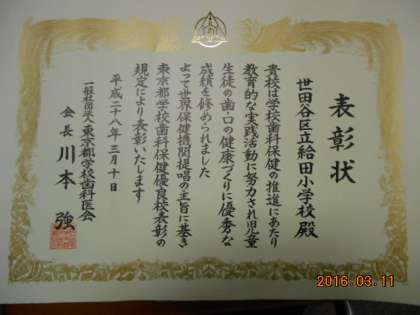 表彰状
世田谷区立給田小学校 殿
貴校は学校歯科保健の推進にあたり
教育的な実践活動に努力され児童
生徒の歯・口の健康づくりに優秀な
成績を修められました
よって世界保健機関提唱の主旨に基き
東京都学校歯科保健優良校表彰の
規定により表彰いたします
平成二十八年三月十日
一般社団法人東京都学校歯科医会
会長 川本 強
2016.03.11